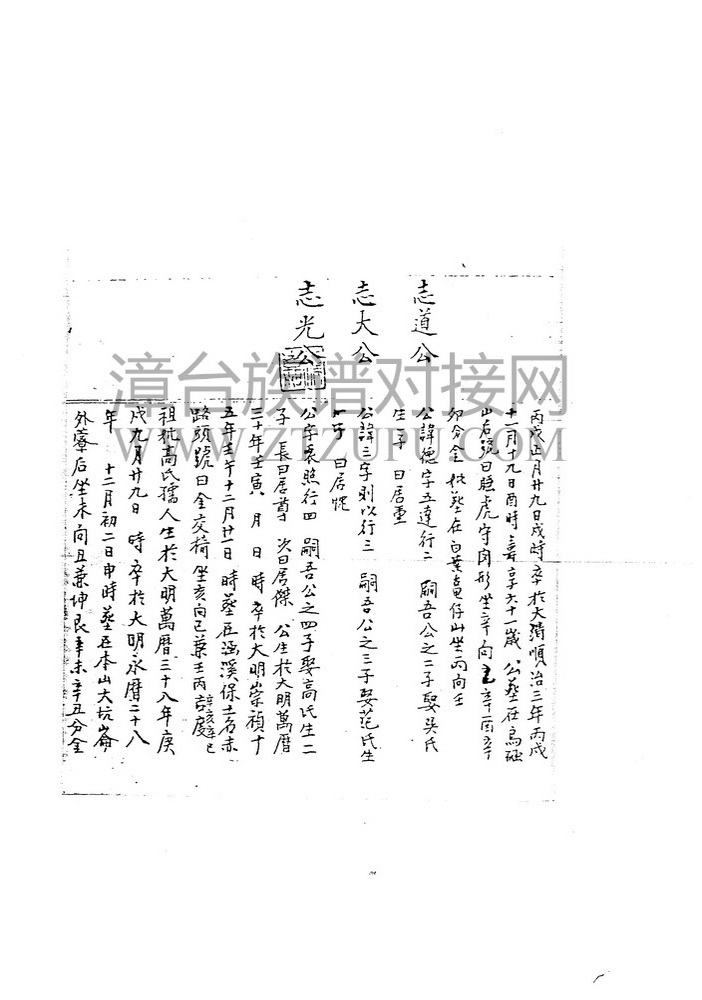 丙戌正月廿九日戌時卒於大清順治三年丙戌
十一月十九日酉時壽享六十一歲 公葬在烏
山后號曰 虎守 形坐辛向 辛酉辛
卯分金 妣葬在白葉 仔山坐丙向壬
志道公
公諱德字五達行二 嗣吾公之二子娶吳氏
生一子 曰居重
志大公
公諱三字則以行三 嗣吾公之三子娶范氏生
一子 曰居
志光公
公字衷照行四 嗣吾公之四子娶高氏生二
子 長曰居尊 次曰居傑 公生於大明萬曆
三十年壬寅 月 日 時卒於大明崇禎十
五年壬午十二月廿一日 時葬在 溪保土名赤
路頭號曰金交椅 坐亥向巳兼壬丙 辛亥辛巳 度
祖妣高氏孺人生於大明萬曆三十八年庚
戌九月廿九日 時卒於大明永曆二十八
年 十二月初二日申時葬在本山大坑崙
外藔后坐未向丑兼坤艮辛未辛丑分金
漳台族谱对接网
WWW.ZTZUPU.COM